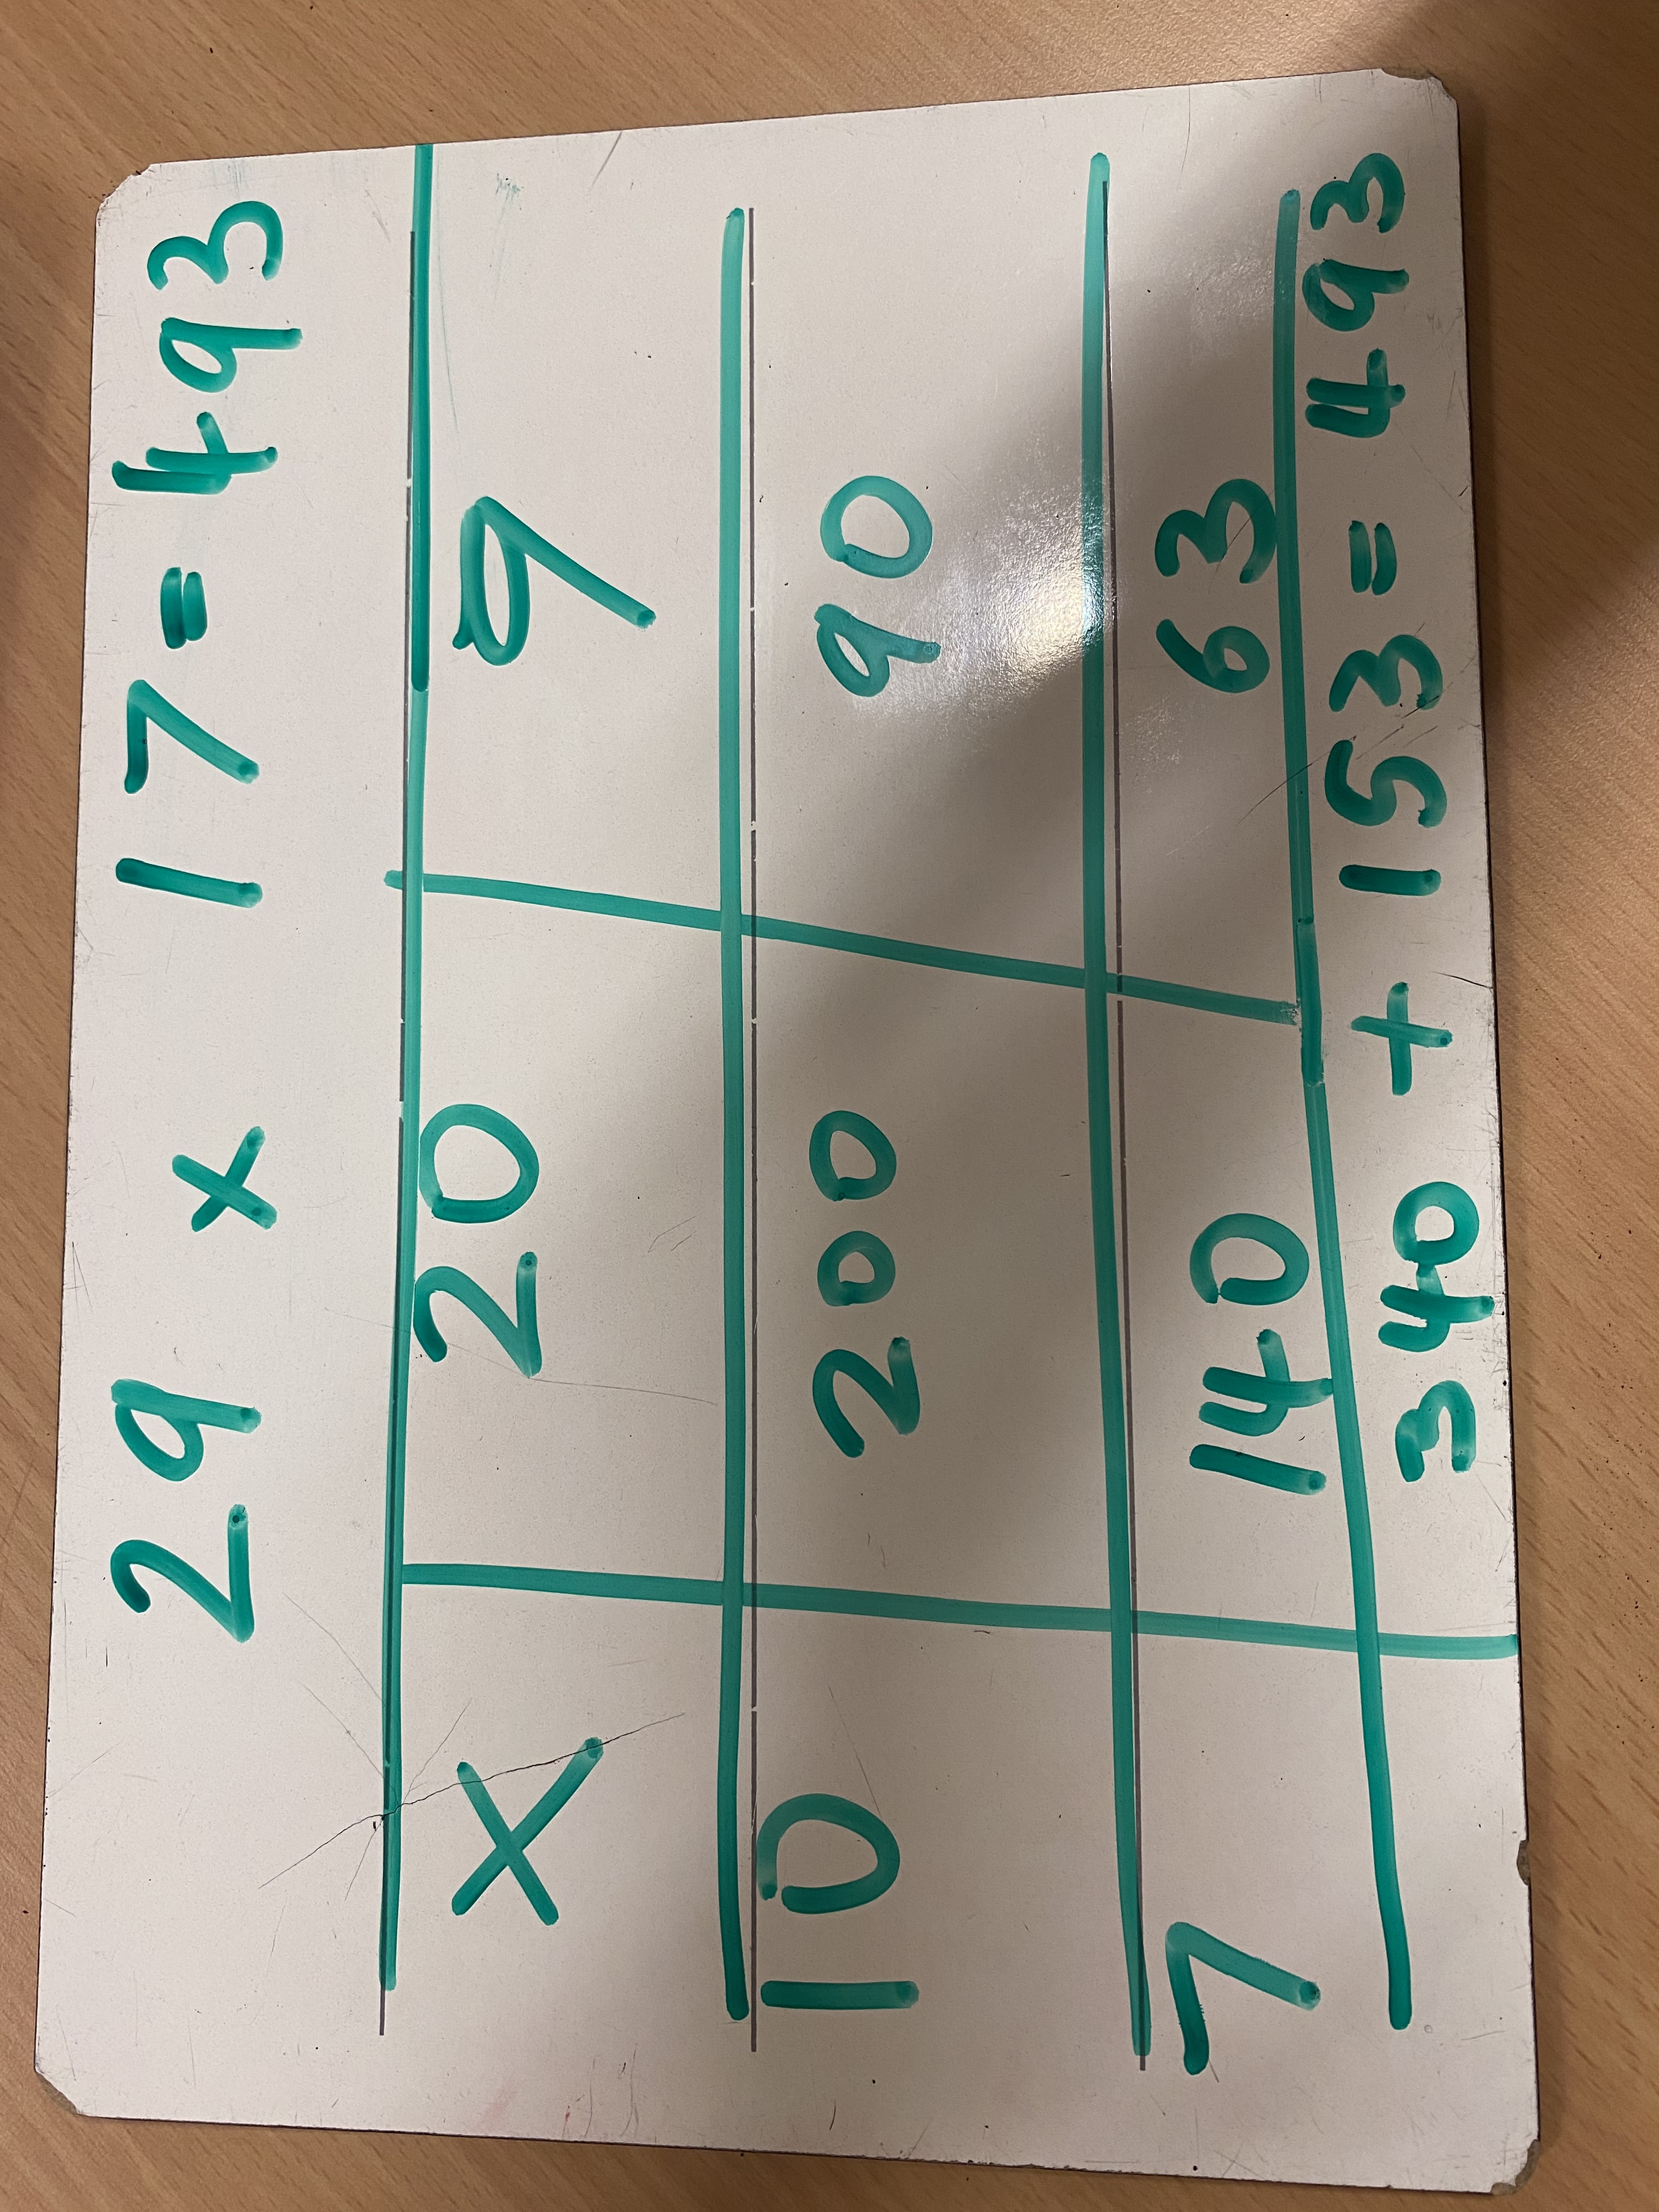 29 × 17 = 493
× 20 9
10 200 90
7 140 63
340 + 153 = 493